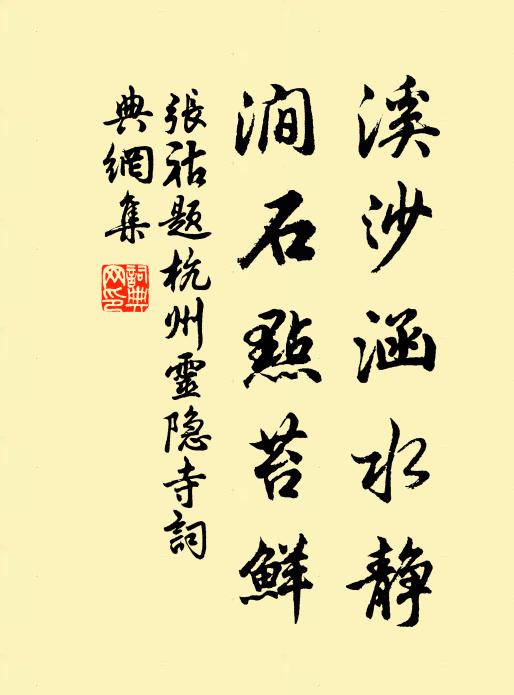 溪沙涵水静
澗石點苔鮮
張祜題杭州靈隐寺詞
典網集
詞典网印